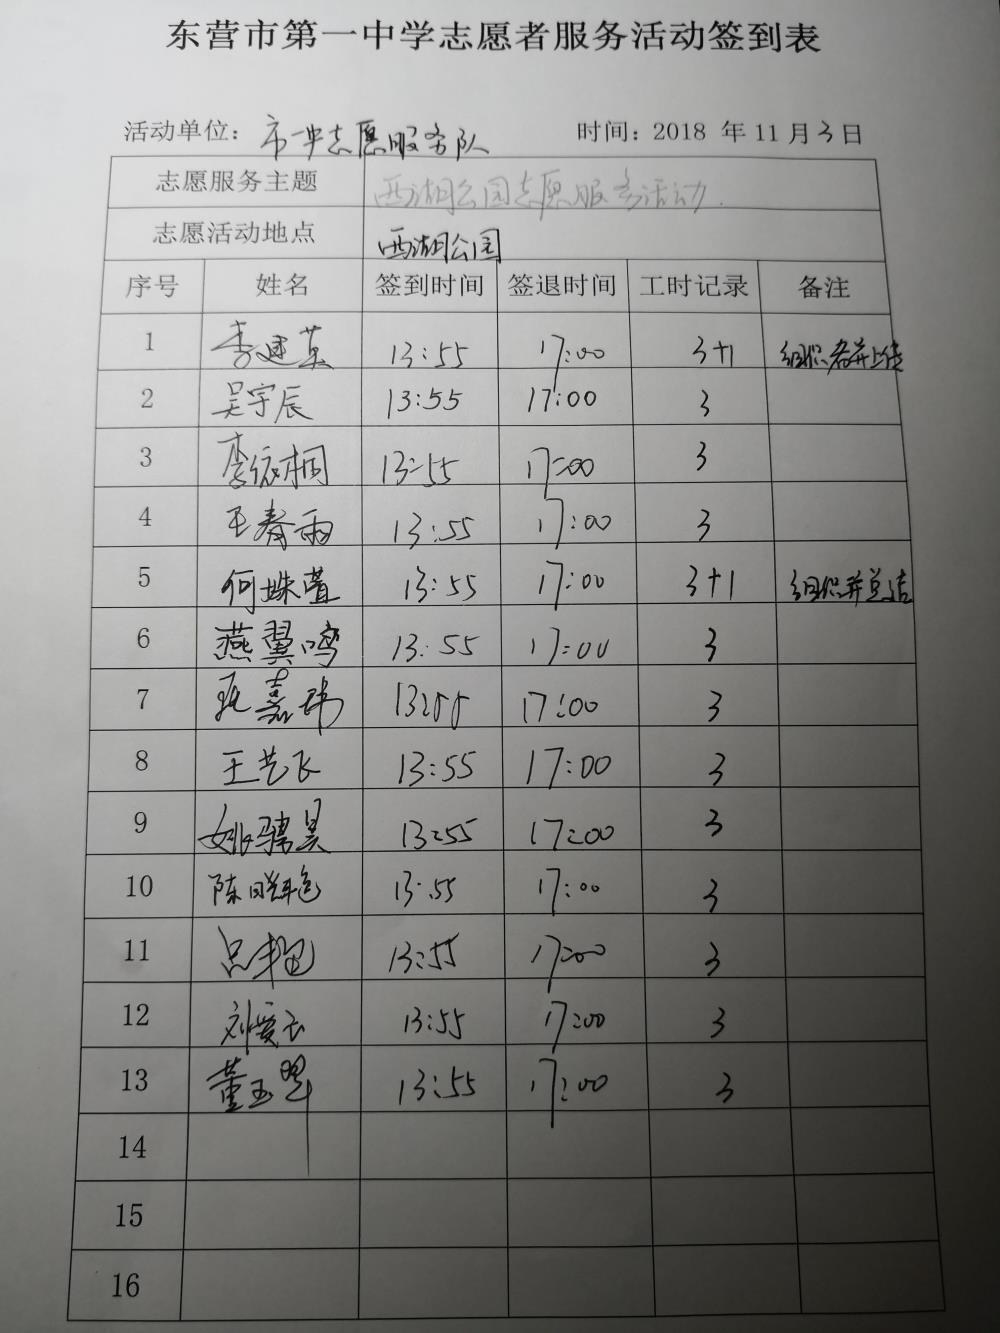 东营市第一中学志愿者服务活动签到表
活动单位: 市一中志愿服务队 时间: 2018 年 11 月 3 日
志愿服务主题 西湖公园志愿服务活动.
志愿活动地点 西湖公园
序号 姓名 签到时间 签退时间 工时记录 备注
1 李建英 13:55 17:00 3+1 组织者并上传
2 吴宇辰 13:55 17:00 3
3 李依桐 13:55 17:00 3
4 王春雨 13:55 17:00 3
5 何姝萱 13:55 17:00 3+1 组织并总结
6 燕翼鸣 13:55 17:00 3
7 嘉玮 13:55 17:00 3
8 王艺飞 13:55 17:00 3
9 姚骋昊 13:55 17:00 3
10 陈 13:55 17:00 3
11 13:55 17:00 3
12 刘爱玉 13:55 17:00 3
13 董玉 13:55 17:00 3
14
15
16